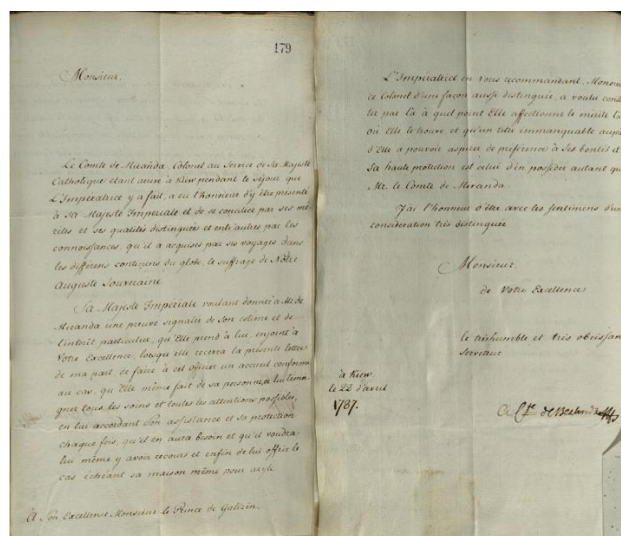 179
Monsieur,
Le Comte de Miranda, Colonel au Service de Sa Majesté
Catholique étant arrivé à Kiew pendant le séjour que
L'Impératrice y a fait, a eu l'honneur d'y être présenté
à Sa Majesté Impériale et de se concilier par ses mé-
rites et ses qualités distinguées et entr'autres par les
connoissances, qu'il a acquises par ses voyages dans
les différens continens du globe, le suffrage de Notre
Auguste Souveraine.
Sa Majesté Impériale voulant donner à Mr. de
Miranda une preuve signalée de Son estime et de
l'intérêt particulier, qu'Elle prend à lui, enjoint à
Votre Excellence, lorsqu'elle recevra la présente lettre
de ma part de faire à cet officier un accueil conforme
au cas, qu'Elle même fait de sa personne, lui temoi-
gner tous les soins et toutes les attentions possibles,
en lui accordant son assistance et sa protection
chaque fois, qu'il en aura besoin et qu'il voudra
lui même y avoir recours et enfin de lui offrir le
cas échéant sa maison même pour asile.
À Son Excellence Monsieur le Prince de Galizin.
L'Impératrice en Vous recommandant, Monsieur
ce Colonel d'une façon aussi distinguée, a voulu
ter par là à quel point Elle affectionne le mérite là
où Elle le trouve et qu'un titre immanquable
d'Elle à pouvoir aspirer de préférence à Ses bontés et
Sa haute protection est celui d'en posséder autant que
Mr. le Comte de Miranda.
J'ai l'honneur d'être avec les sentimens d'une
considération très distinguée
Monsieur,
de Votre Excellence
le très humble et très obéissant
serviteur
à Kiew
le 22 d'avril
1787.